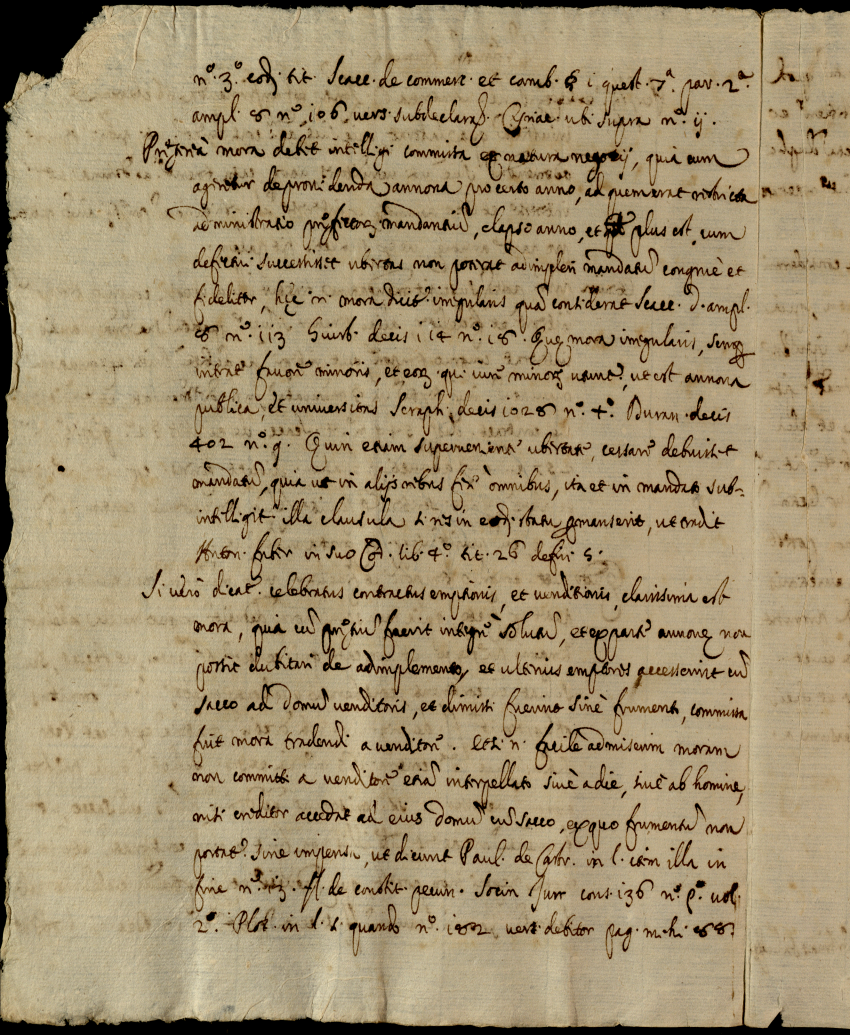 n.º 3.º eod. tit. Scacc. de commerc. et camb. § i quest. 7.ª par. 2.ª
ampl. 8 n.º 106, vers. subdeclara Cyriac. ubi supra n.º ij.
mora debet intelligi commissa ex natura negotij, quia cum
ageretur de providenda annona pro certo anno, ad quem erat restricta
administratio mandantiũ, elapso anno, et plus est, cum
defectui successisset ubertas non poterat adimpleri mandatũ congruè et
fideliter, hęc n. mora dicit.r irregularis quã considerat Scacc. d. ampl.
8 n.º 113 Giurb. decis 114 n.º 18. Quę mora irregularis, semp
intrat favorẽ minoris, et eorũ qui iurẽ minorũ utunt.r, ut est annona
publica, et universitas Seraph. decis 1028 n.º 4.º Duran. decis
402 n.º 9. Quin etiam superveniente ubertate, cessare debuisset
mandatũ, quia ut in alijs rebus ferè omnibus, ita et in mandato sub-
intelligit.r illa clausula si res in eod. statu permanserit, ut tradit
Anton. Faber in suo Cod. lib. 4.º tit. 26 defin. 5.
Si verò dicat.r celebratus contractus emptionis, et venditionis, clarissima est
mora, quia cũ fuerit integrè solutũ, et ex parte annonę non
possit dubitari de adimplemento, et ulterius emptores accesserint cũ
sacco ad domũ venditoris, et dimissi fuerint sinè frumento, commissa
fuit mora tradendi a venditore. Etsi n. facilè admiserim moram
non committi a venditore etiã interpellato sivè a die, sivè ab homine,
nisi creditor accedat ad eius domũ cũ sacco, ex quo frumentũ non
portat.r sine impensa, ut dicunt Paul. de Castr. in l. item illa in
fine n.º 13. ff. de constit. pecun. Socin Jun. cons. 136 n.º p.º vol.
2.º Plot. in l. si quando n.º 1802 vers. debitor pag. mihi 88.